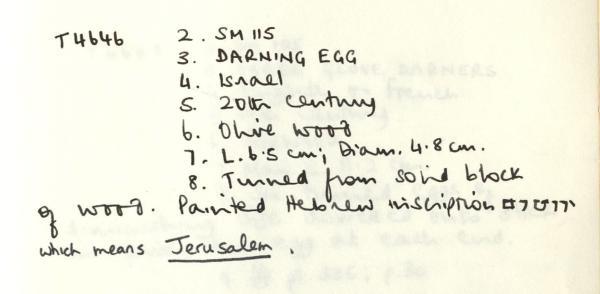 T4646 2. SM 115
3. DARNING EGG
4. Israel
5. 20th century
6. Olive wood
7. L. 6.5 cm; Diam. 4.8 cm.
8. Turned from solid block
of wood. Painted Hebrew inscription
which means Jerusalem.